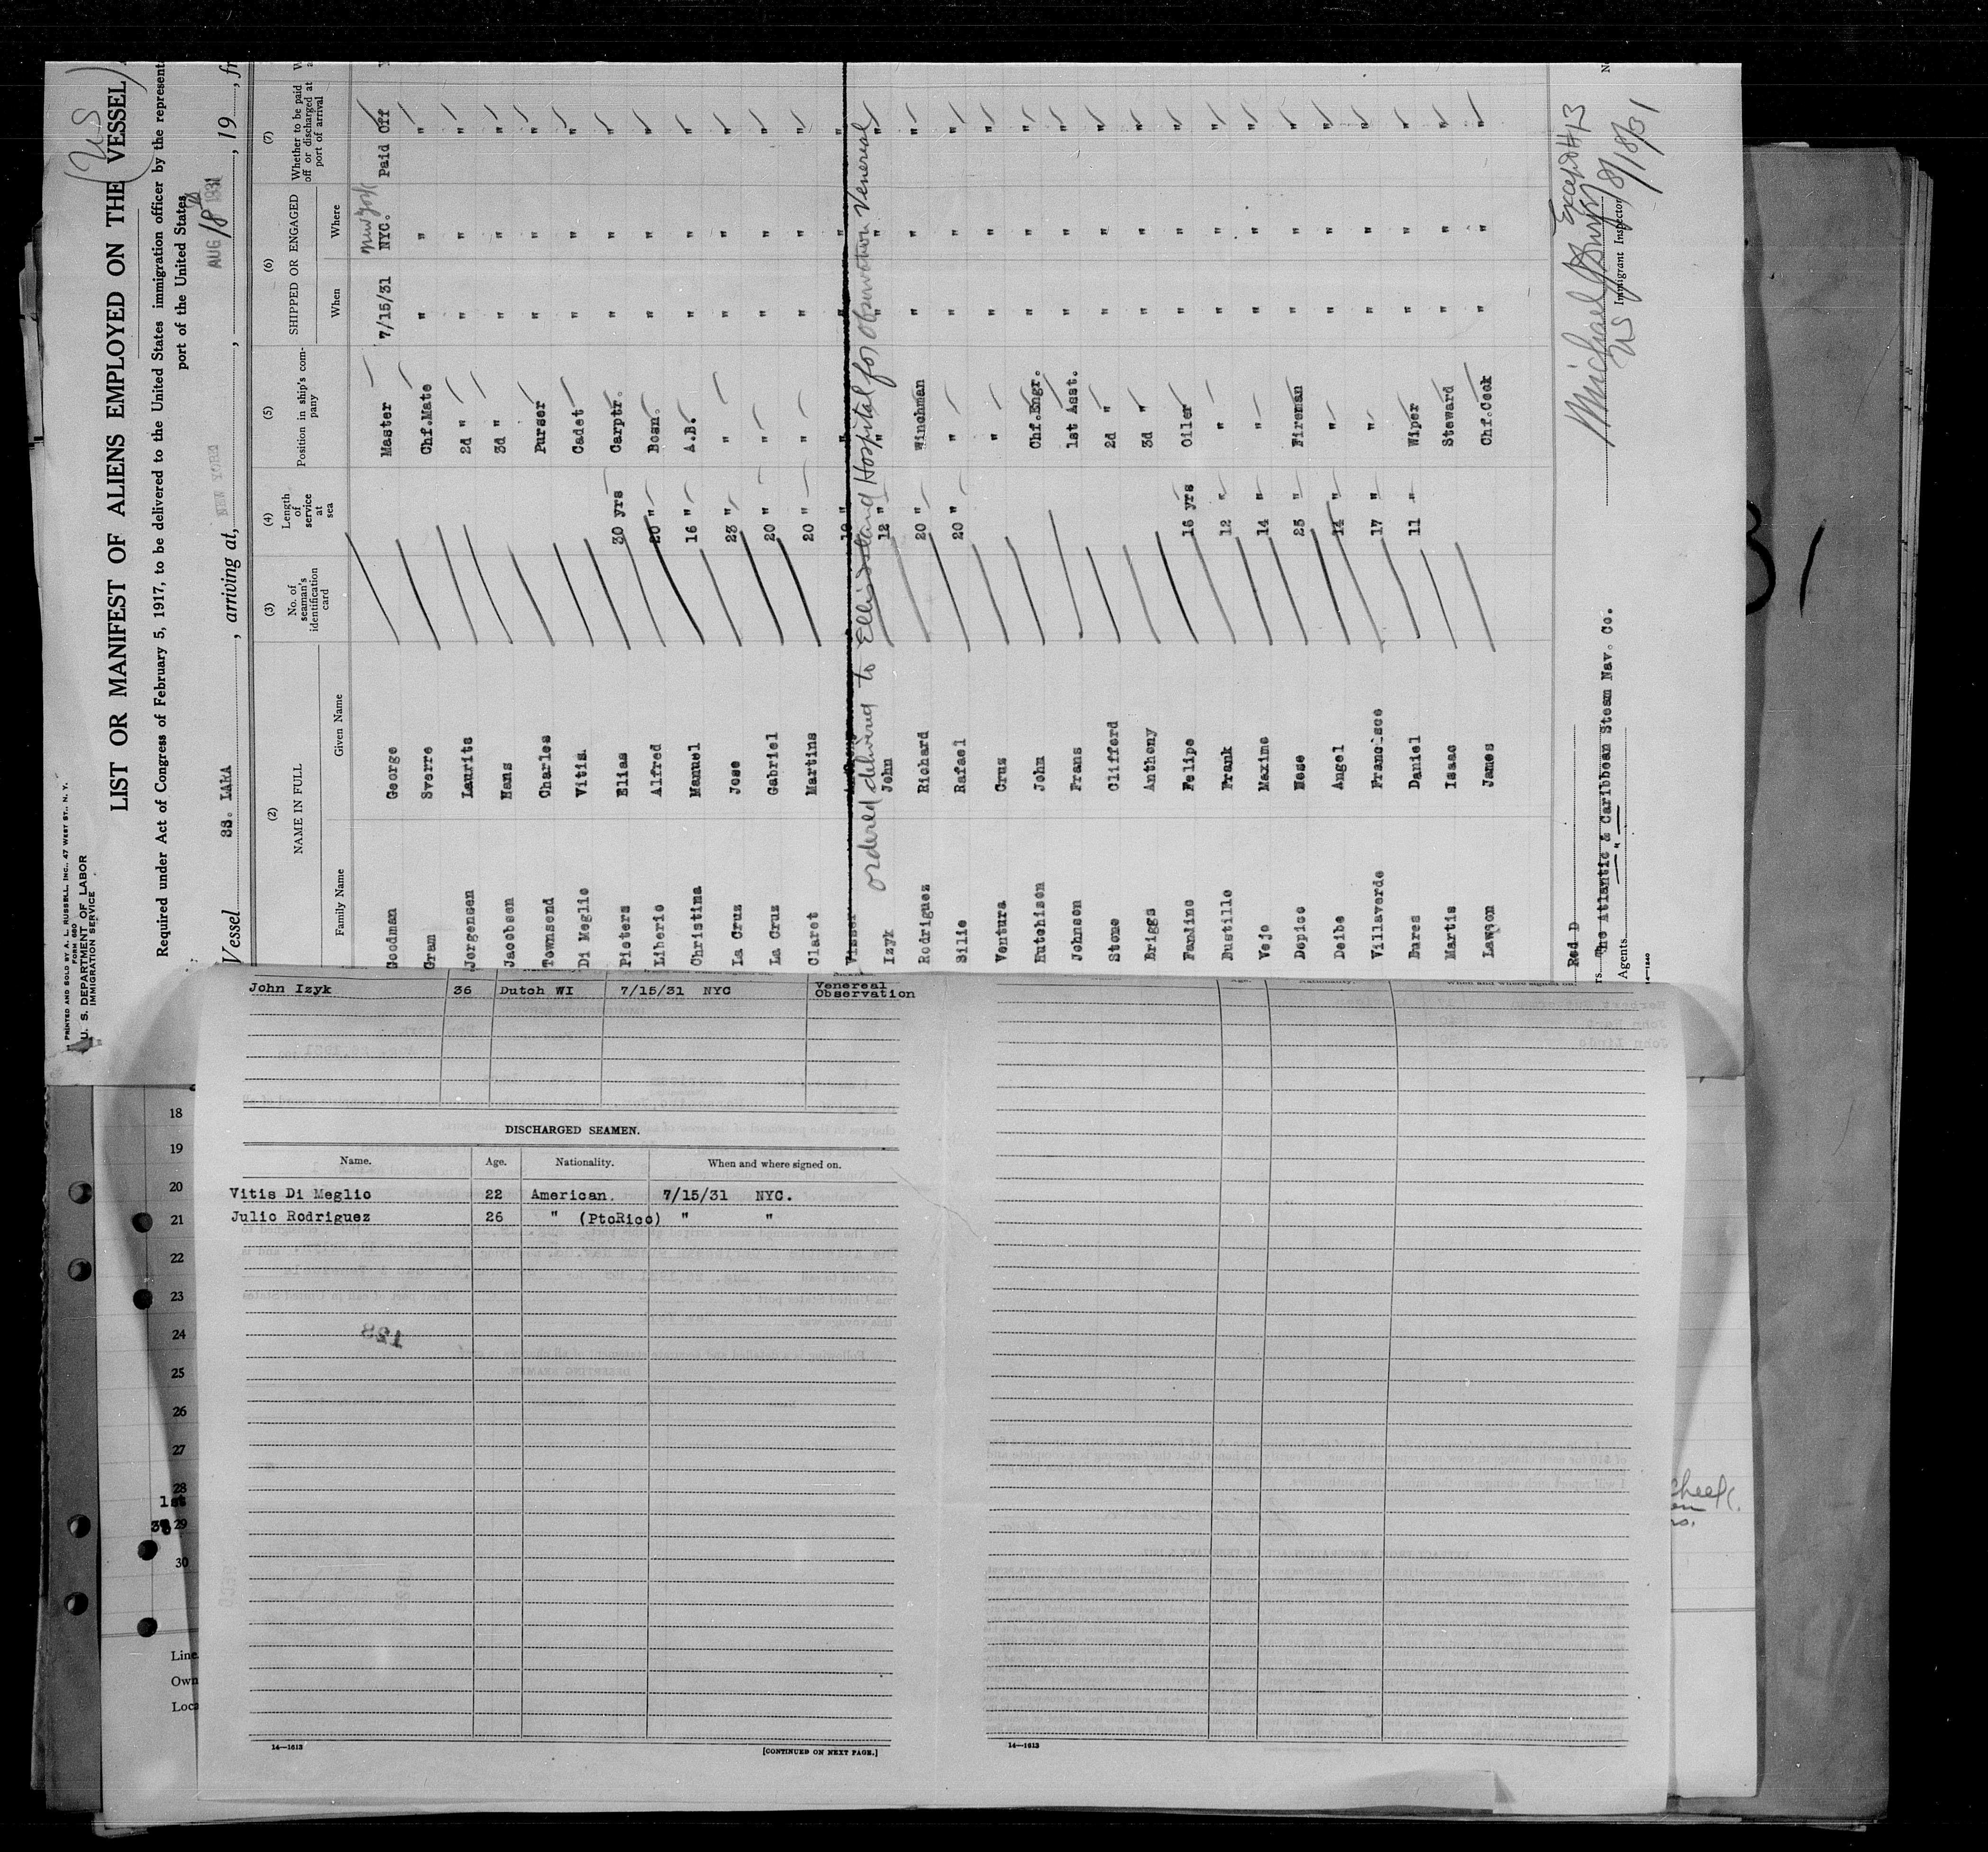 PRINTED AND SOLD BY A. L. RUSSELL, INC., 47 WEST ST., N. Y.
FORM 680
U. S. DEPARTMENT OF LABOR
IMMIGRATION SERVICE
(US)
LIST OR MANIFEST OF ALIENS EMPLOYED ON THE VESSEL
Required under Act of Congress of February 5, 1917, to be delivered to the United States immigration officer by the represent
port of the United States
Vessel SS. LARA, arriving at, NEW YORK, AUG 18th 1931, 19, fr
(2) (3) (4) (5) (6) (7)
NAME IN FULL No. of seaman's identification card Length of service at sea Position in ship's company SHIPPED OR ENGAGED Whether to be paid off or discharged at port of arrival
Family Name Given Name When Where
New York
Goodman George Master 7/15/31 NYC. Paid Off
Gram Sverre Chf.Mate " " "
Jorgensen Laurits 2d " " " "
Jacobsen Hans 3d " " " "
Townsend Charles Purser " " "
Di Meglio Vitis. Cadet " " "
Pieters Elias 30 yrs Carptr. " " "
Liberio Alfred 20 " Bosn. " " "
Christina Manuel 16 " A.B. " " "
La Cruz Jose 23 " " " " "
La Cruz Gabriel 20 " " " " "
Claret Martins 20 " " " " "
Visser 10 " " " " "
Izyk John 12 " " " " "
ordered delivered to Ellis Island Hospital for observation Venereal
Rodriguez Richard 20 " Winchman " " "
Silie Rafael 20 " " " " "
Ventura Cruz " " " "
Hutchison John Chf.Engr. " " "
Johnson Frans 1st Asst. " " "
Stone Clifford 2d " " " "
Briggs Anthony 3d " " " "
Fantino Felipe 16 yrs Oiler " " "
Bustillo Frank 12 " " " " "
Vejo Maximo 14 " " " " "
Depico Mose 25 " Fireman " " "
Deibe Angel 14 " " " " "
Villaverde Francisco 17 " " " " "
Bures Daniel 11 " Wiper " " "
Martis Isaac Steward " " "
Lawton James Chf.Cook " " "
Red D
The Atlantic & Caribbean Steam Nav. Co.
Agents "
14—1240
Except #13
Michael
US Immigrant Inspector 8/18/31
John Izyk 36 Dutch WI 7/15/31 NYC Venereal Observation
DISCHARGED SEAMEN.
Name. Age. Nationality. When and where signed on.
Vitis Di Meglio 22 American. 7/15/31 NYC.
Julio Rodriguez 26 " (PtoRico) " "
128
14—1613
[CONTINUED ON NEXT PAGE.]
14—1613
18
19
20
21
22
23
24
25
26
27
28
1st
29
30
Line
Own
Loca
31